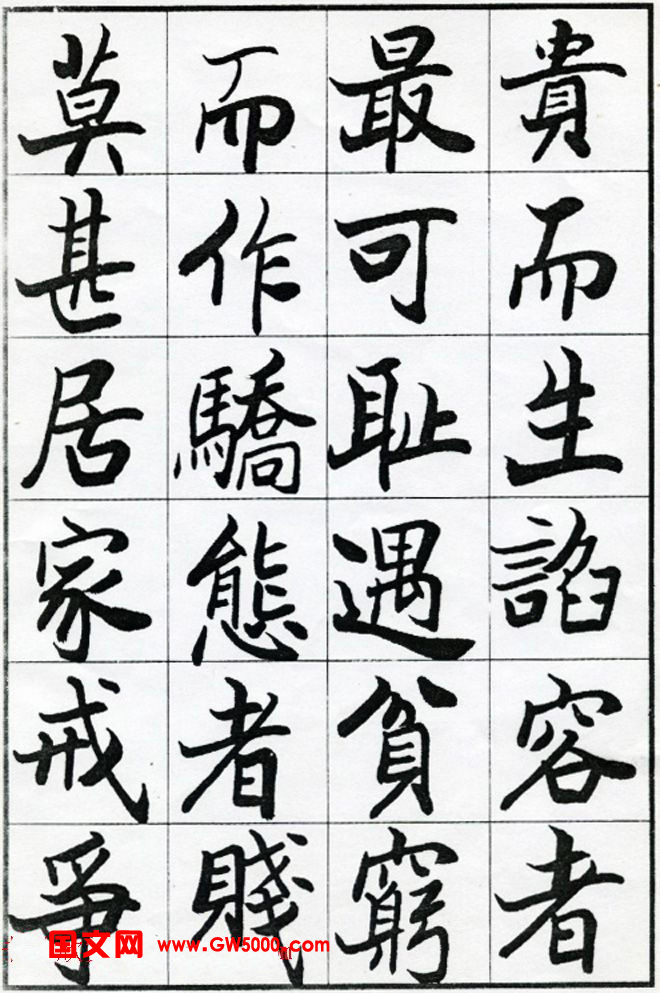 貴而生諂容者
最可耻遇貧窮
而作驕態者賤
莫甚居家戒爭
国文网 www.GW5000.com